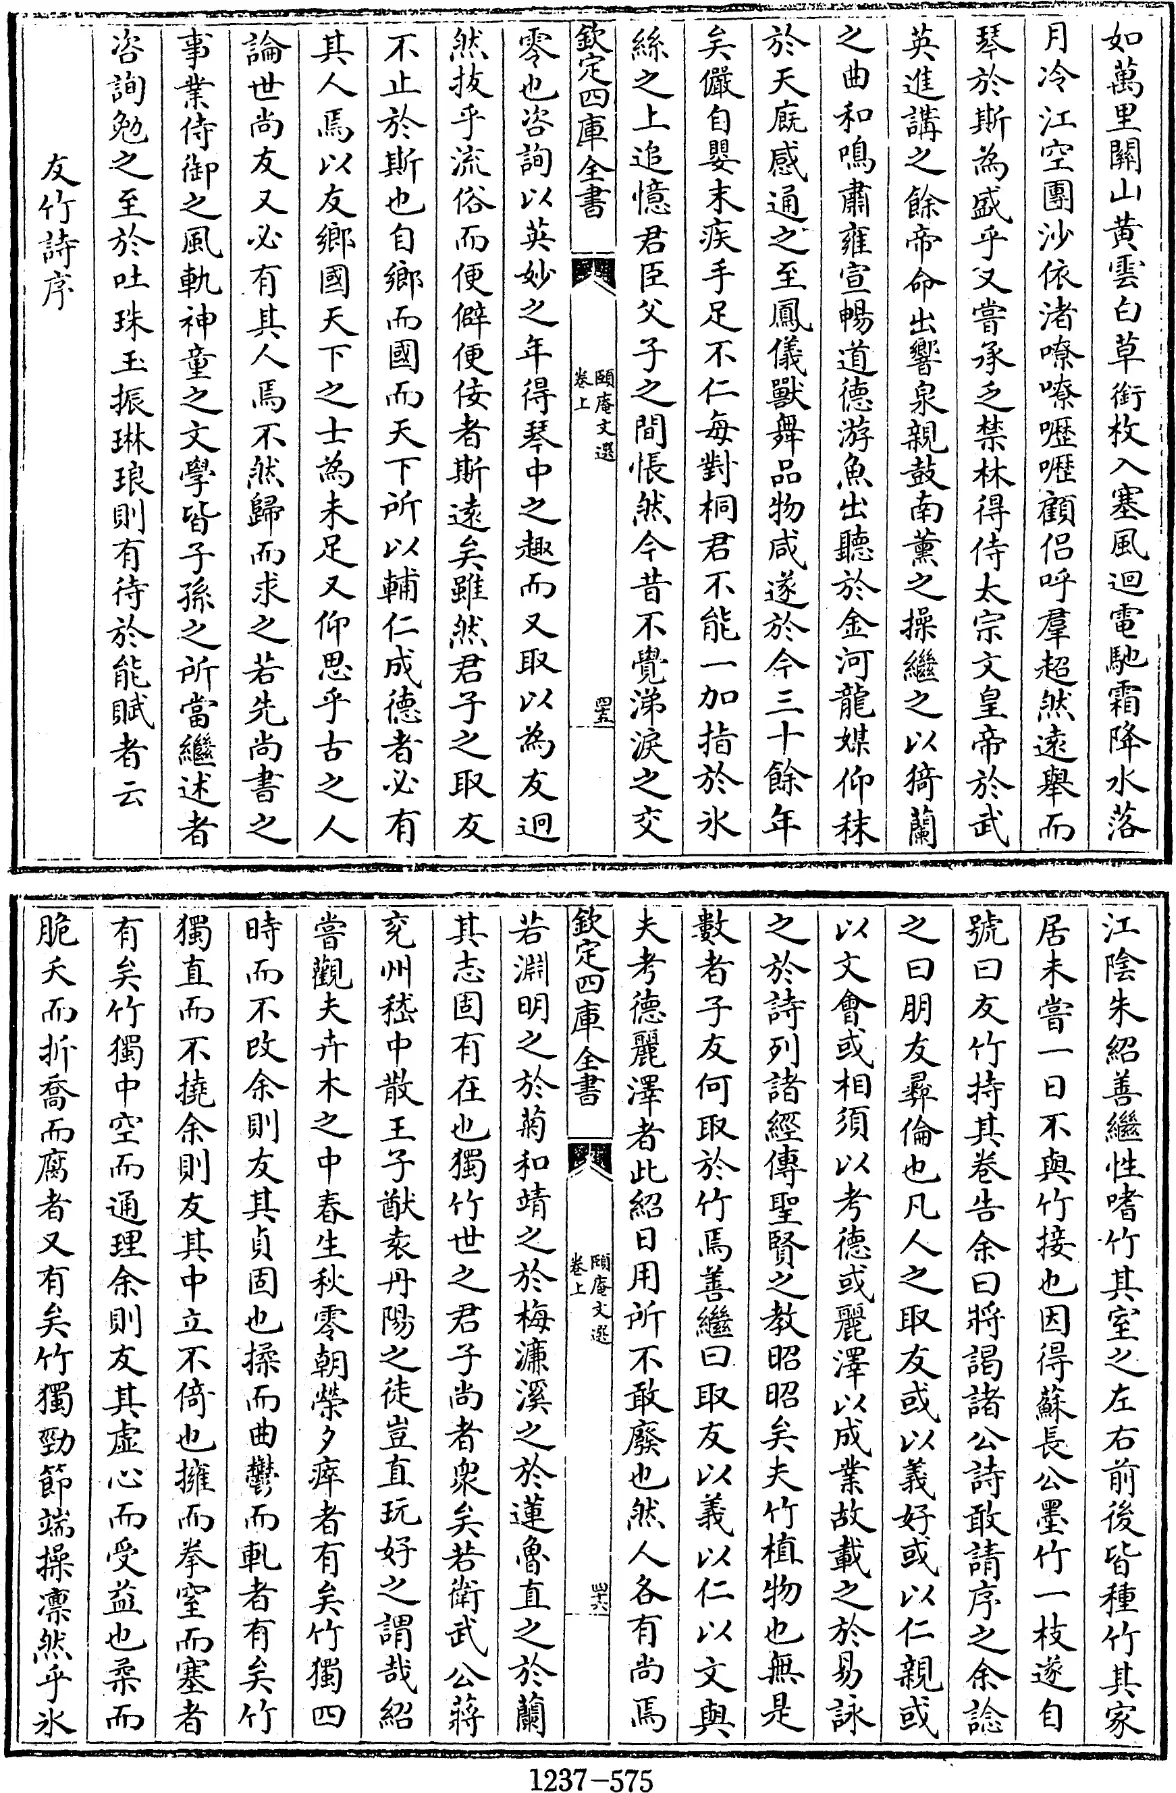 如萬里關山黄雲白草銜枚入塞風迴電馳霜降水落
月冷江空團沙依渚嘹嘹嚦嚦顧侣呼羣超然逺舉而
琴於斯為盛乎又嘗承乏禁林得侍太宗文皇帝於武
英進講之餘帝命出響泉親鼓南薰之操繼之以猗蘭
之曲和鳴肅雍宣暢道德游魚出聽於金河龍媒仰秣
於天廐感通之至鳳儀獸舞品物咸遂於今三十餘年
矣儼自嬰末疾手足不仁每對桐君不能一加指於氷
絲之上追憶君臣父子之間悵然今昔不覺涕淚之交
欽定四庫全書
頤庵文選
卷上
四十五
零也咨詢以英妙之年得琴中之趣而又取以為友迥
然抜乎流俗而便僻便佞者斯逺矣雖然君子之取友
不止於斯也自鄉而國而天下所以輔仁成德者必有
其人焉以友鄉國天下之士為未足又仰思乎古之人
論世尚友又必有其人焉不然歸而求之若先尚書之
事業侍御之風軌神童之文學皆子孫之所當繼述者
咨詢勉之至於吐珠玉振琳琅則有待於能賦者云
友竹詩序
江陰朱紹善繼性嗜竹其室之左右前後皆種竹其家
居未嘗一日不與竹接也因得蘇長公墨竹一枝遂自
號曰友竹持其巻告余曰將謁諸公詩敢請序之余諗
之曰朋友彛倫也凡人之取友或以義好或以仁親或
以文會或相須以考德或麗澤以成業故載之於易詠
之於詩列諸經傳聖賢之教昭昭矣夫竹植物也無是
數者子友何取於竹焉善繼曰取友以義以仁以文與
夫考德麗澤者此紹日用所不敢廢也然人各有尚焉
欽定四庫全書
頤庵文選
卷上
四十六
若淵明之於菊和靖之於梅濂溪之於蓮魯直之於蘭
其志固有在也獨竹世之君子尚者衆矣若衛武公蔣
兖州嵇中散王子猷袁丹陽之徒豈直玩好之謂哉紹
嘗觀夫卉木之中春生秋零朝榮夕瘁者有矣竹獨四
時而不改余則友其貞固也揉而曲鬱而軋者有矣竹
獨直而不撓余則友其中立不倚也擁而拳窒而塞者
有矣竹獨中空而通理余則友其虚心而受益也柔而
脆夭而折喬而腐者又有矣竹獨勁節端操凛然乎氷
1237-575